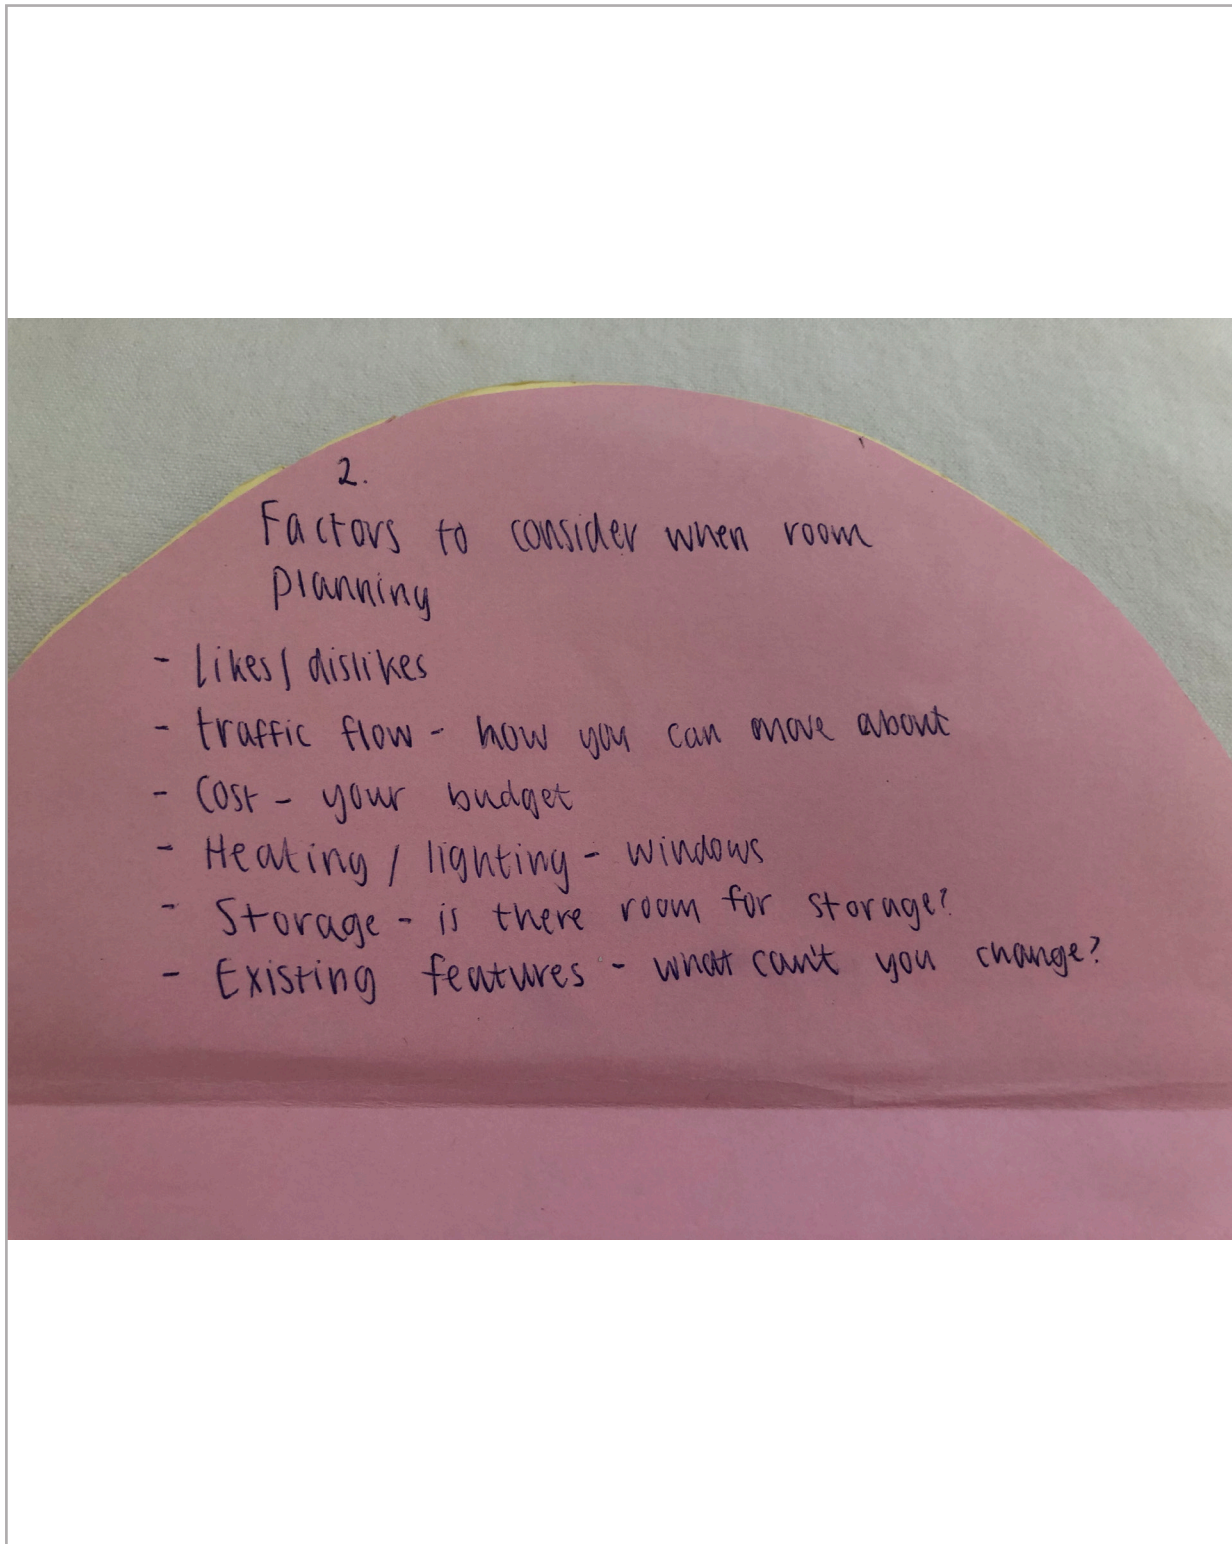 2.
Factors to consider when room
planning
- Likes/dislikes
- traffic flow - how you can move about
- Cost - your budget
- Heating / lighting - windows
- Storage - is there room for storage?
- Existing features - what can't you change?